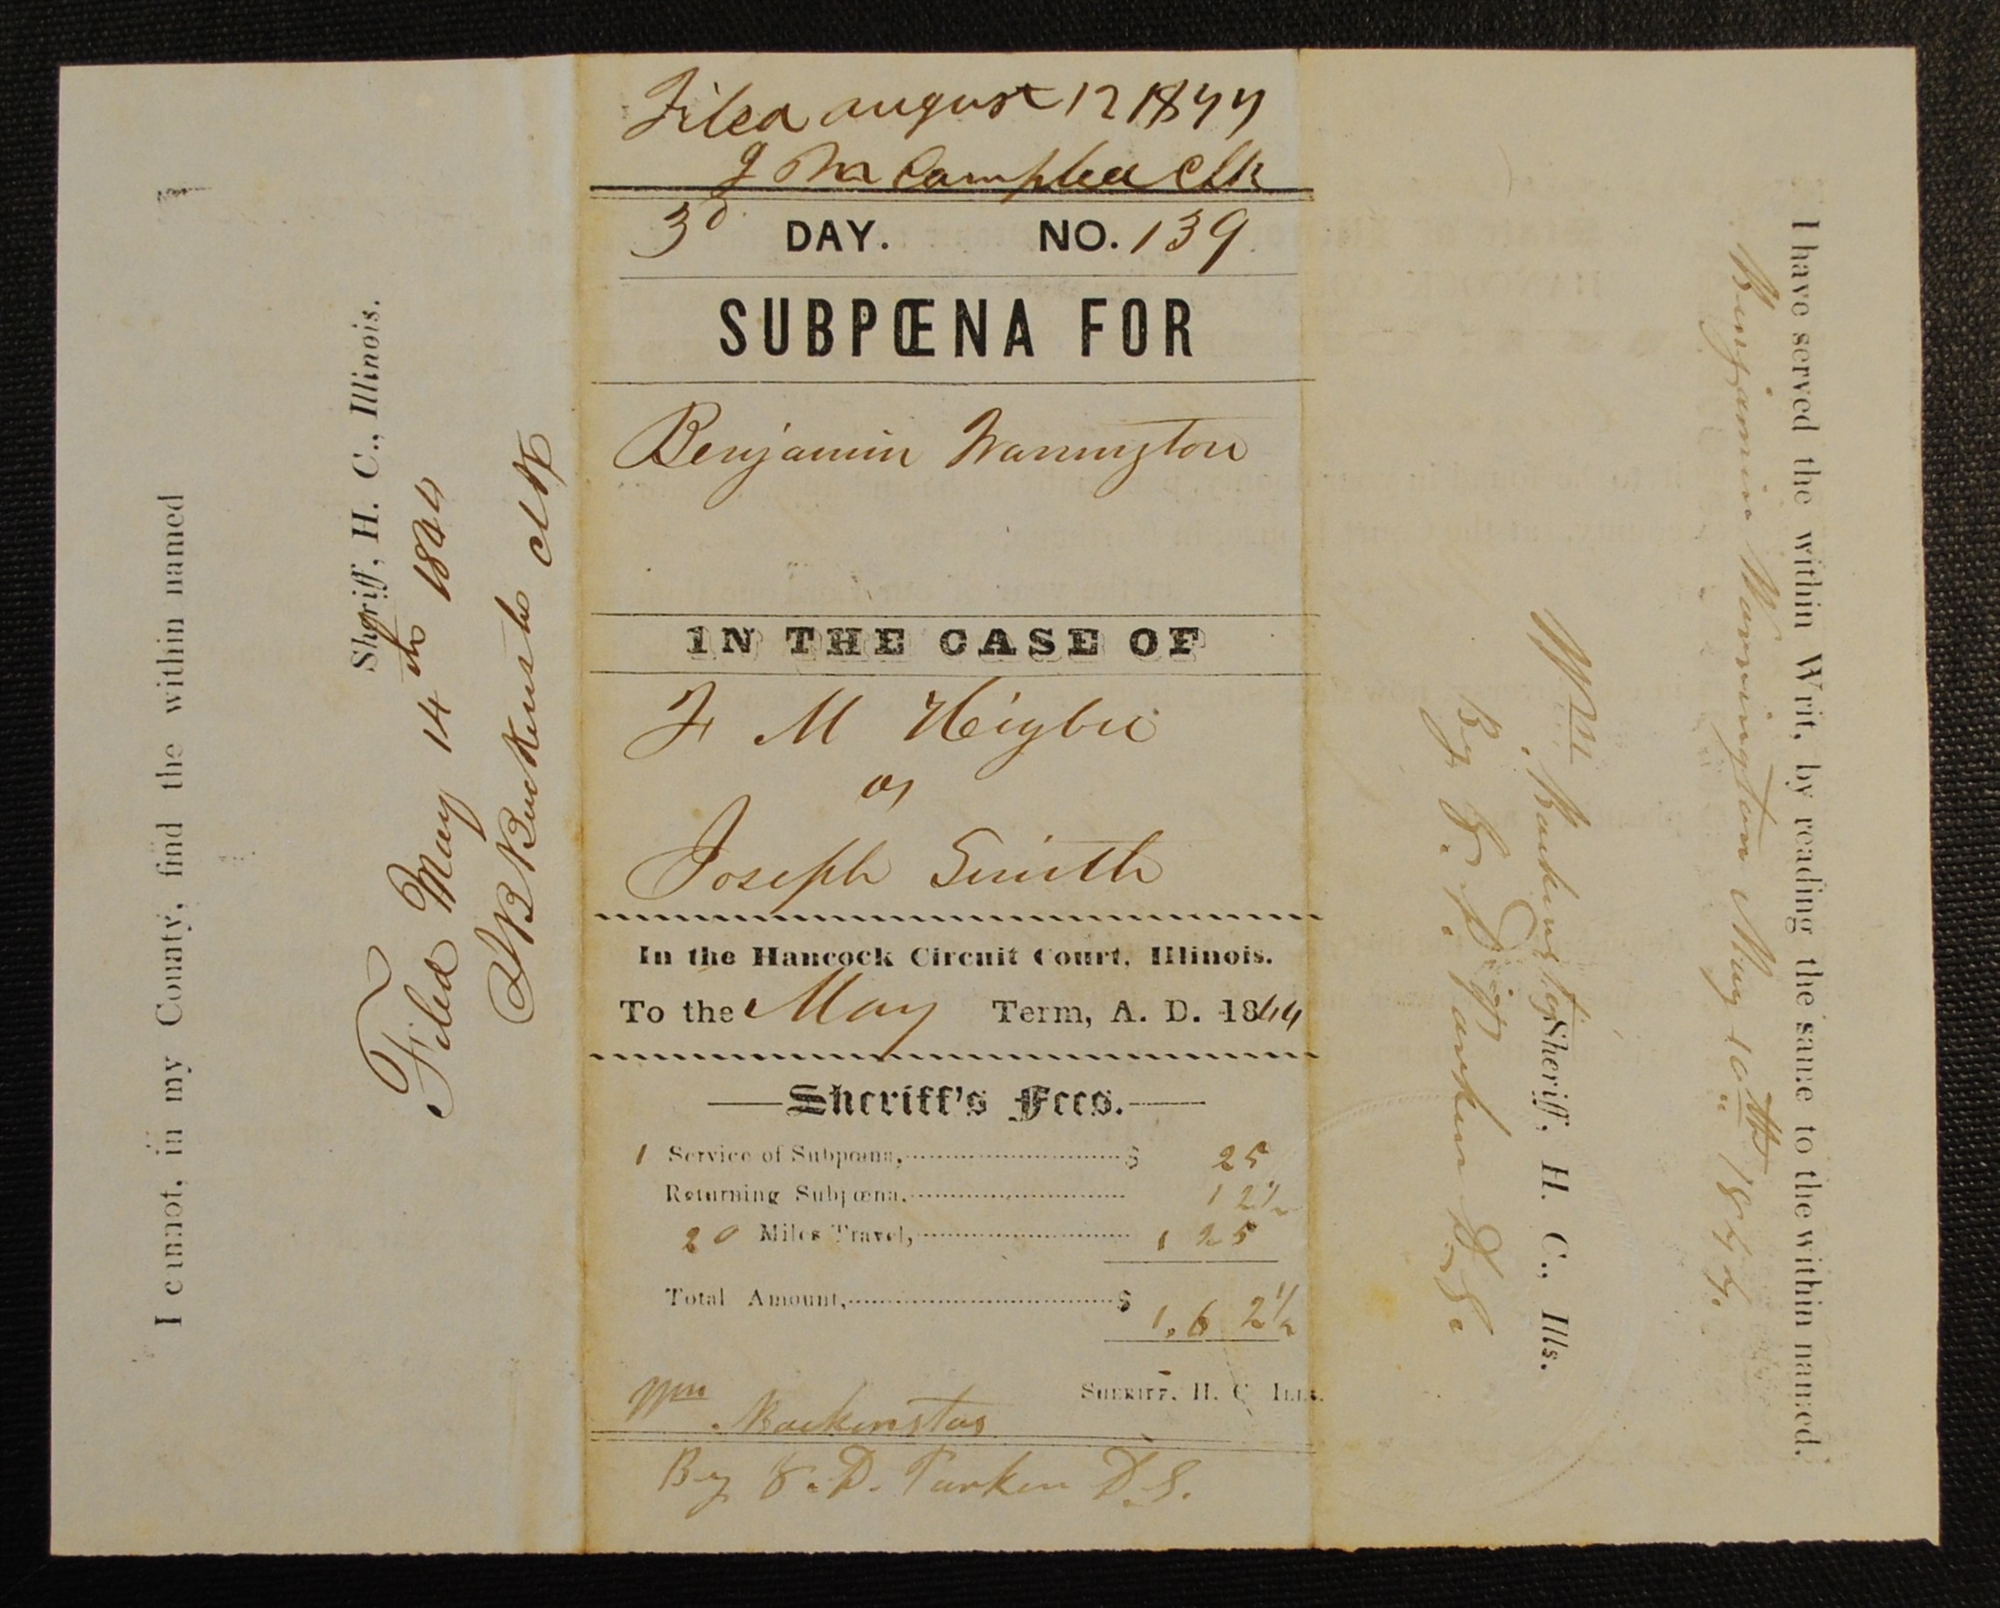 I cannot, in my County, find the within named
Sheriff, H. C., Illinois.
Filed May 14th 1844
J B Backenstos Clk
Filed august 12 1844
J M Campbell Clk
3d DAY. NO. 139
SUBPŒNA FOR
Benjamin Warrington
IN THE CASE OF
F M Heigbie
vs
Joseph Smith
In the Hancock Circuit Court, Illinois.
To the May Term, A. D. 1844
Sheriff's Fees.
1 Service of Subpœna, $ 25
Returning Subpœna, 12½
20 Miles Travel, 1 25
Total Amount, $ 1.62½
SHERIFF, H. C. ILLS.
Wm Backenstos
By T. D. Parker D.S.
I have served the within Writ, by reading the same to the within named.
Benjamin Warrington May 10th 1844.
Wm Backenstos Sheriff, H. C., Ills.
By T. D. Parker D.S.